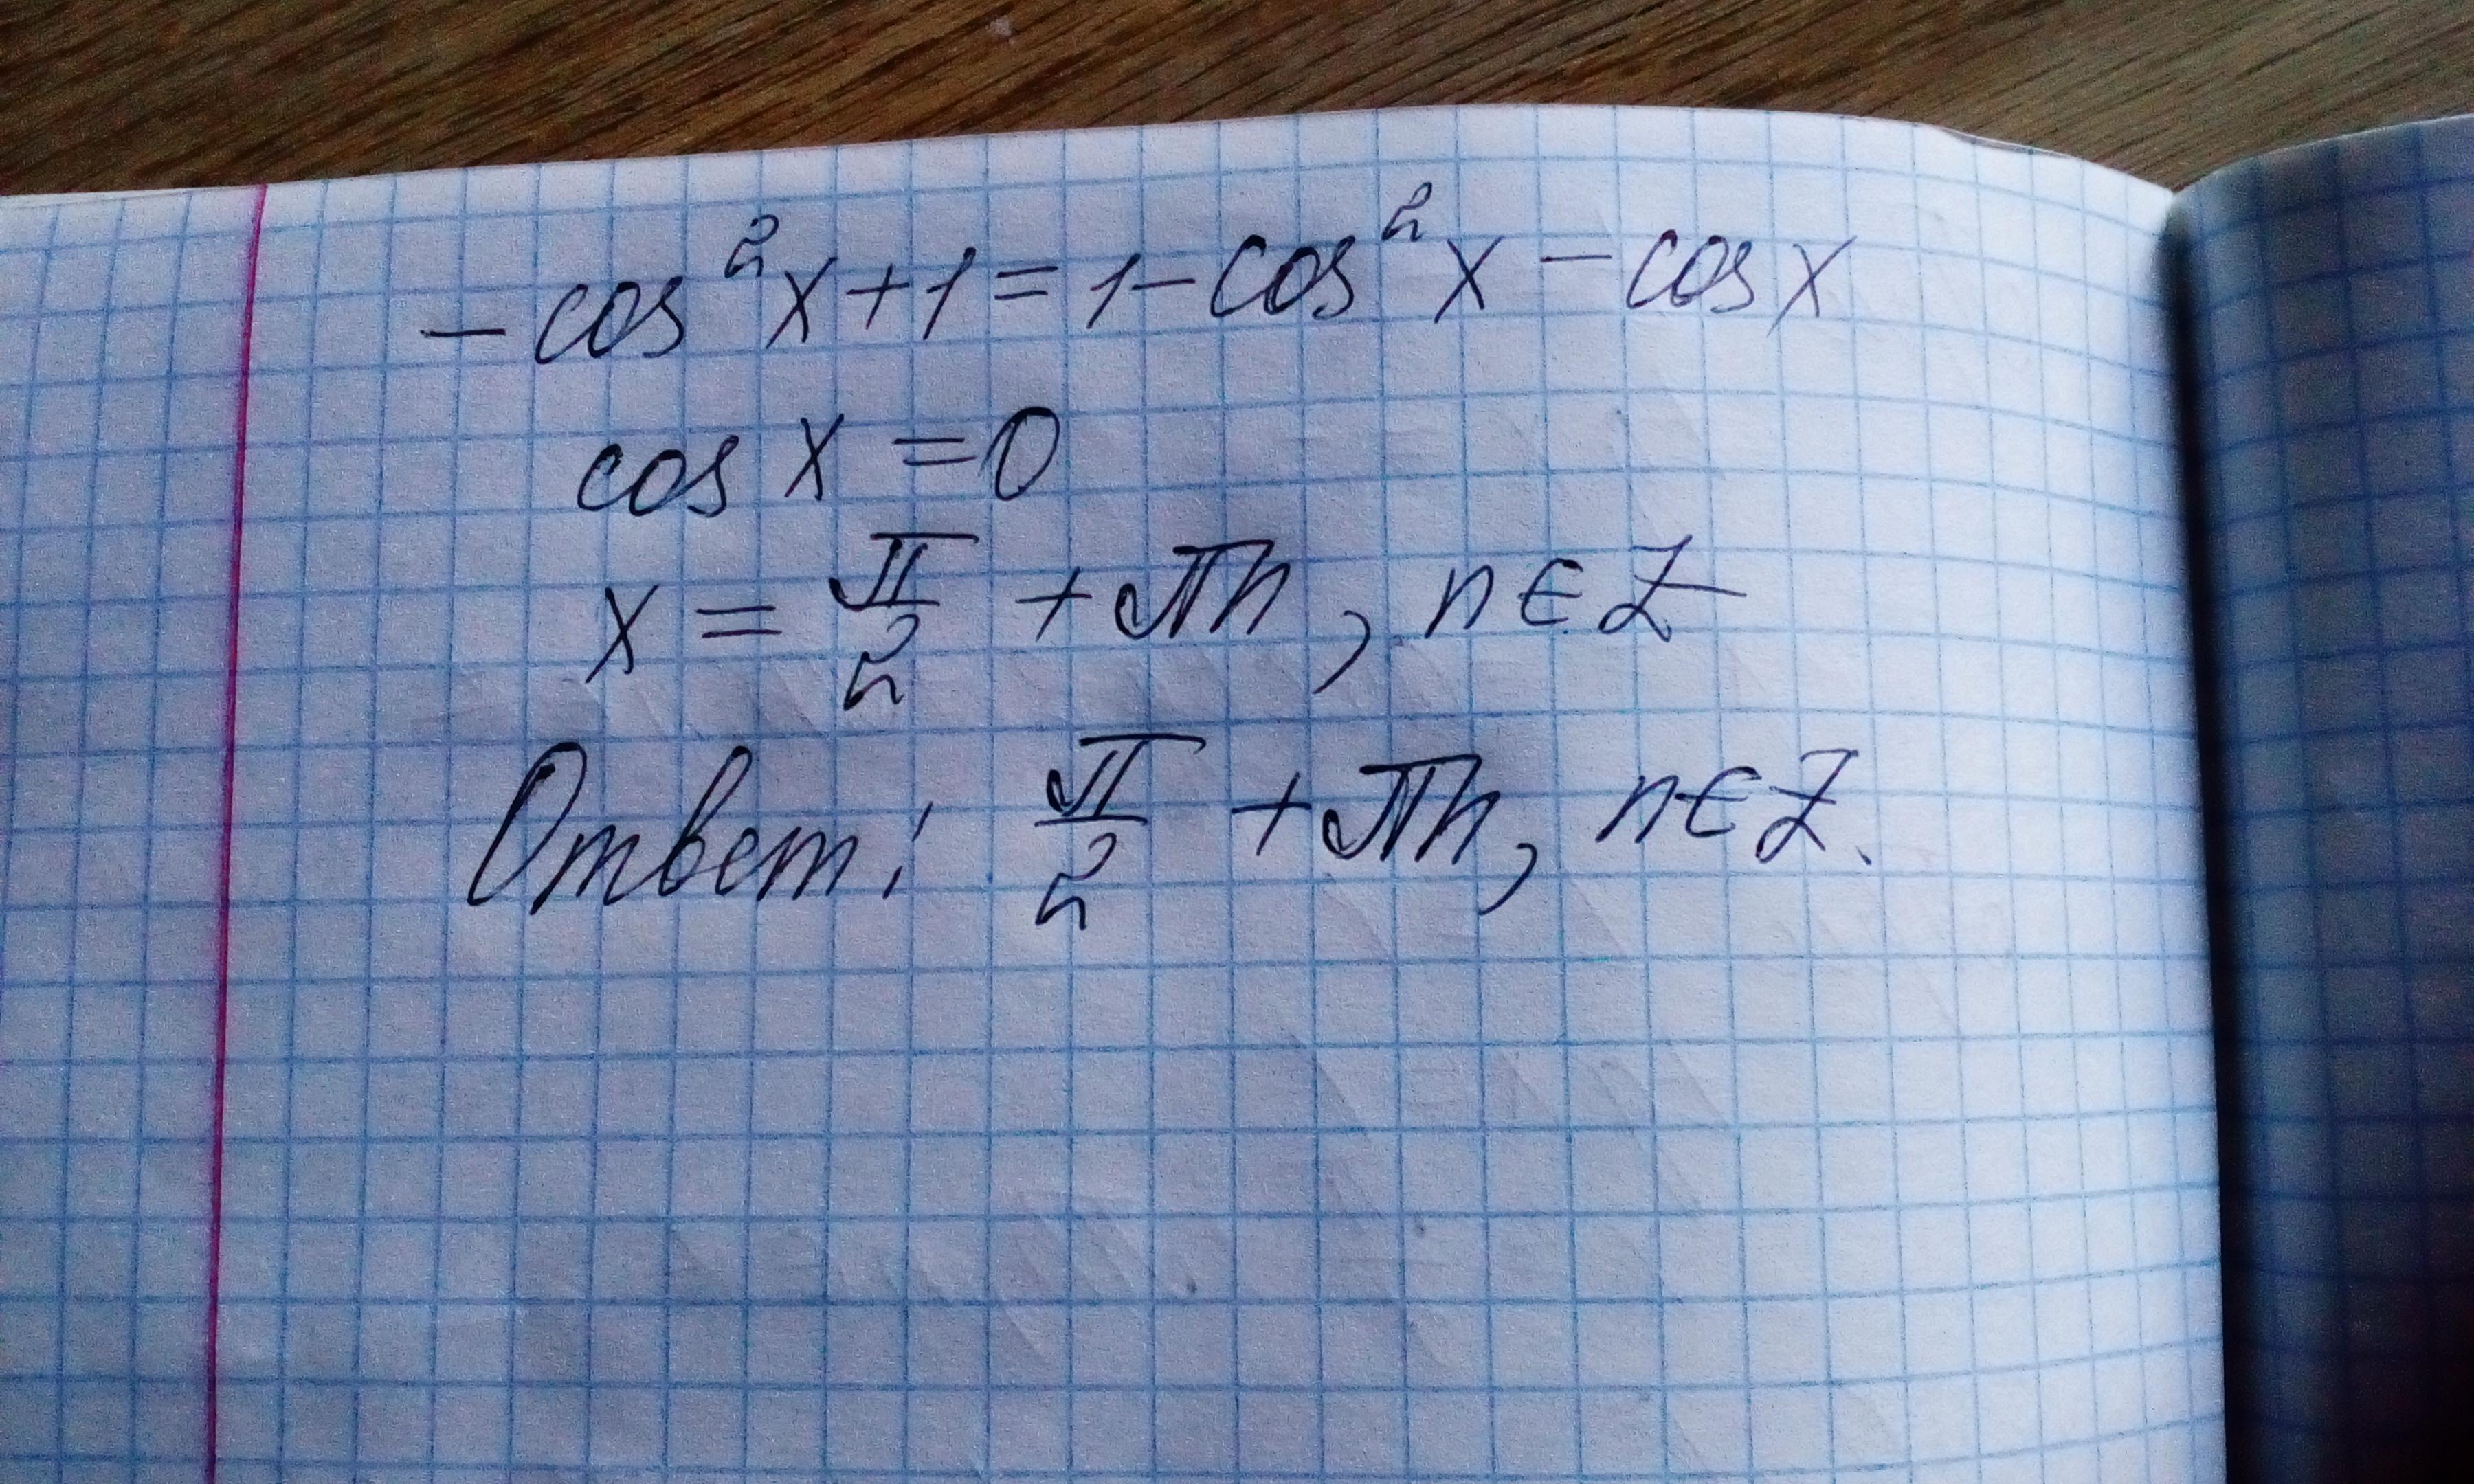 -cos²x+1=1-cos²x-cosx
cos x=0
x=π/2+πn, n∈Z
Ответ: π/2+πn, n∈Z.